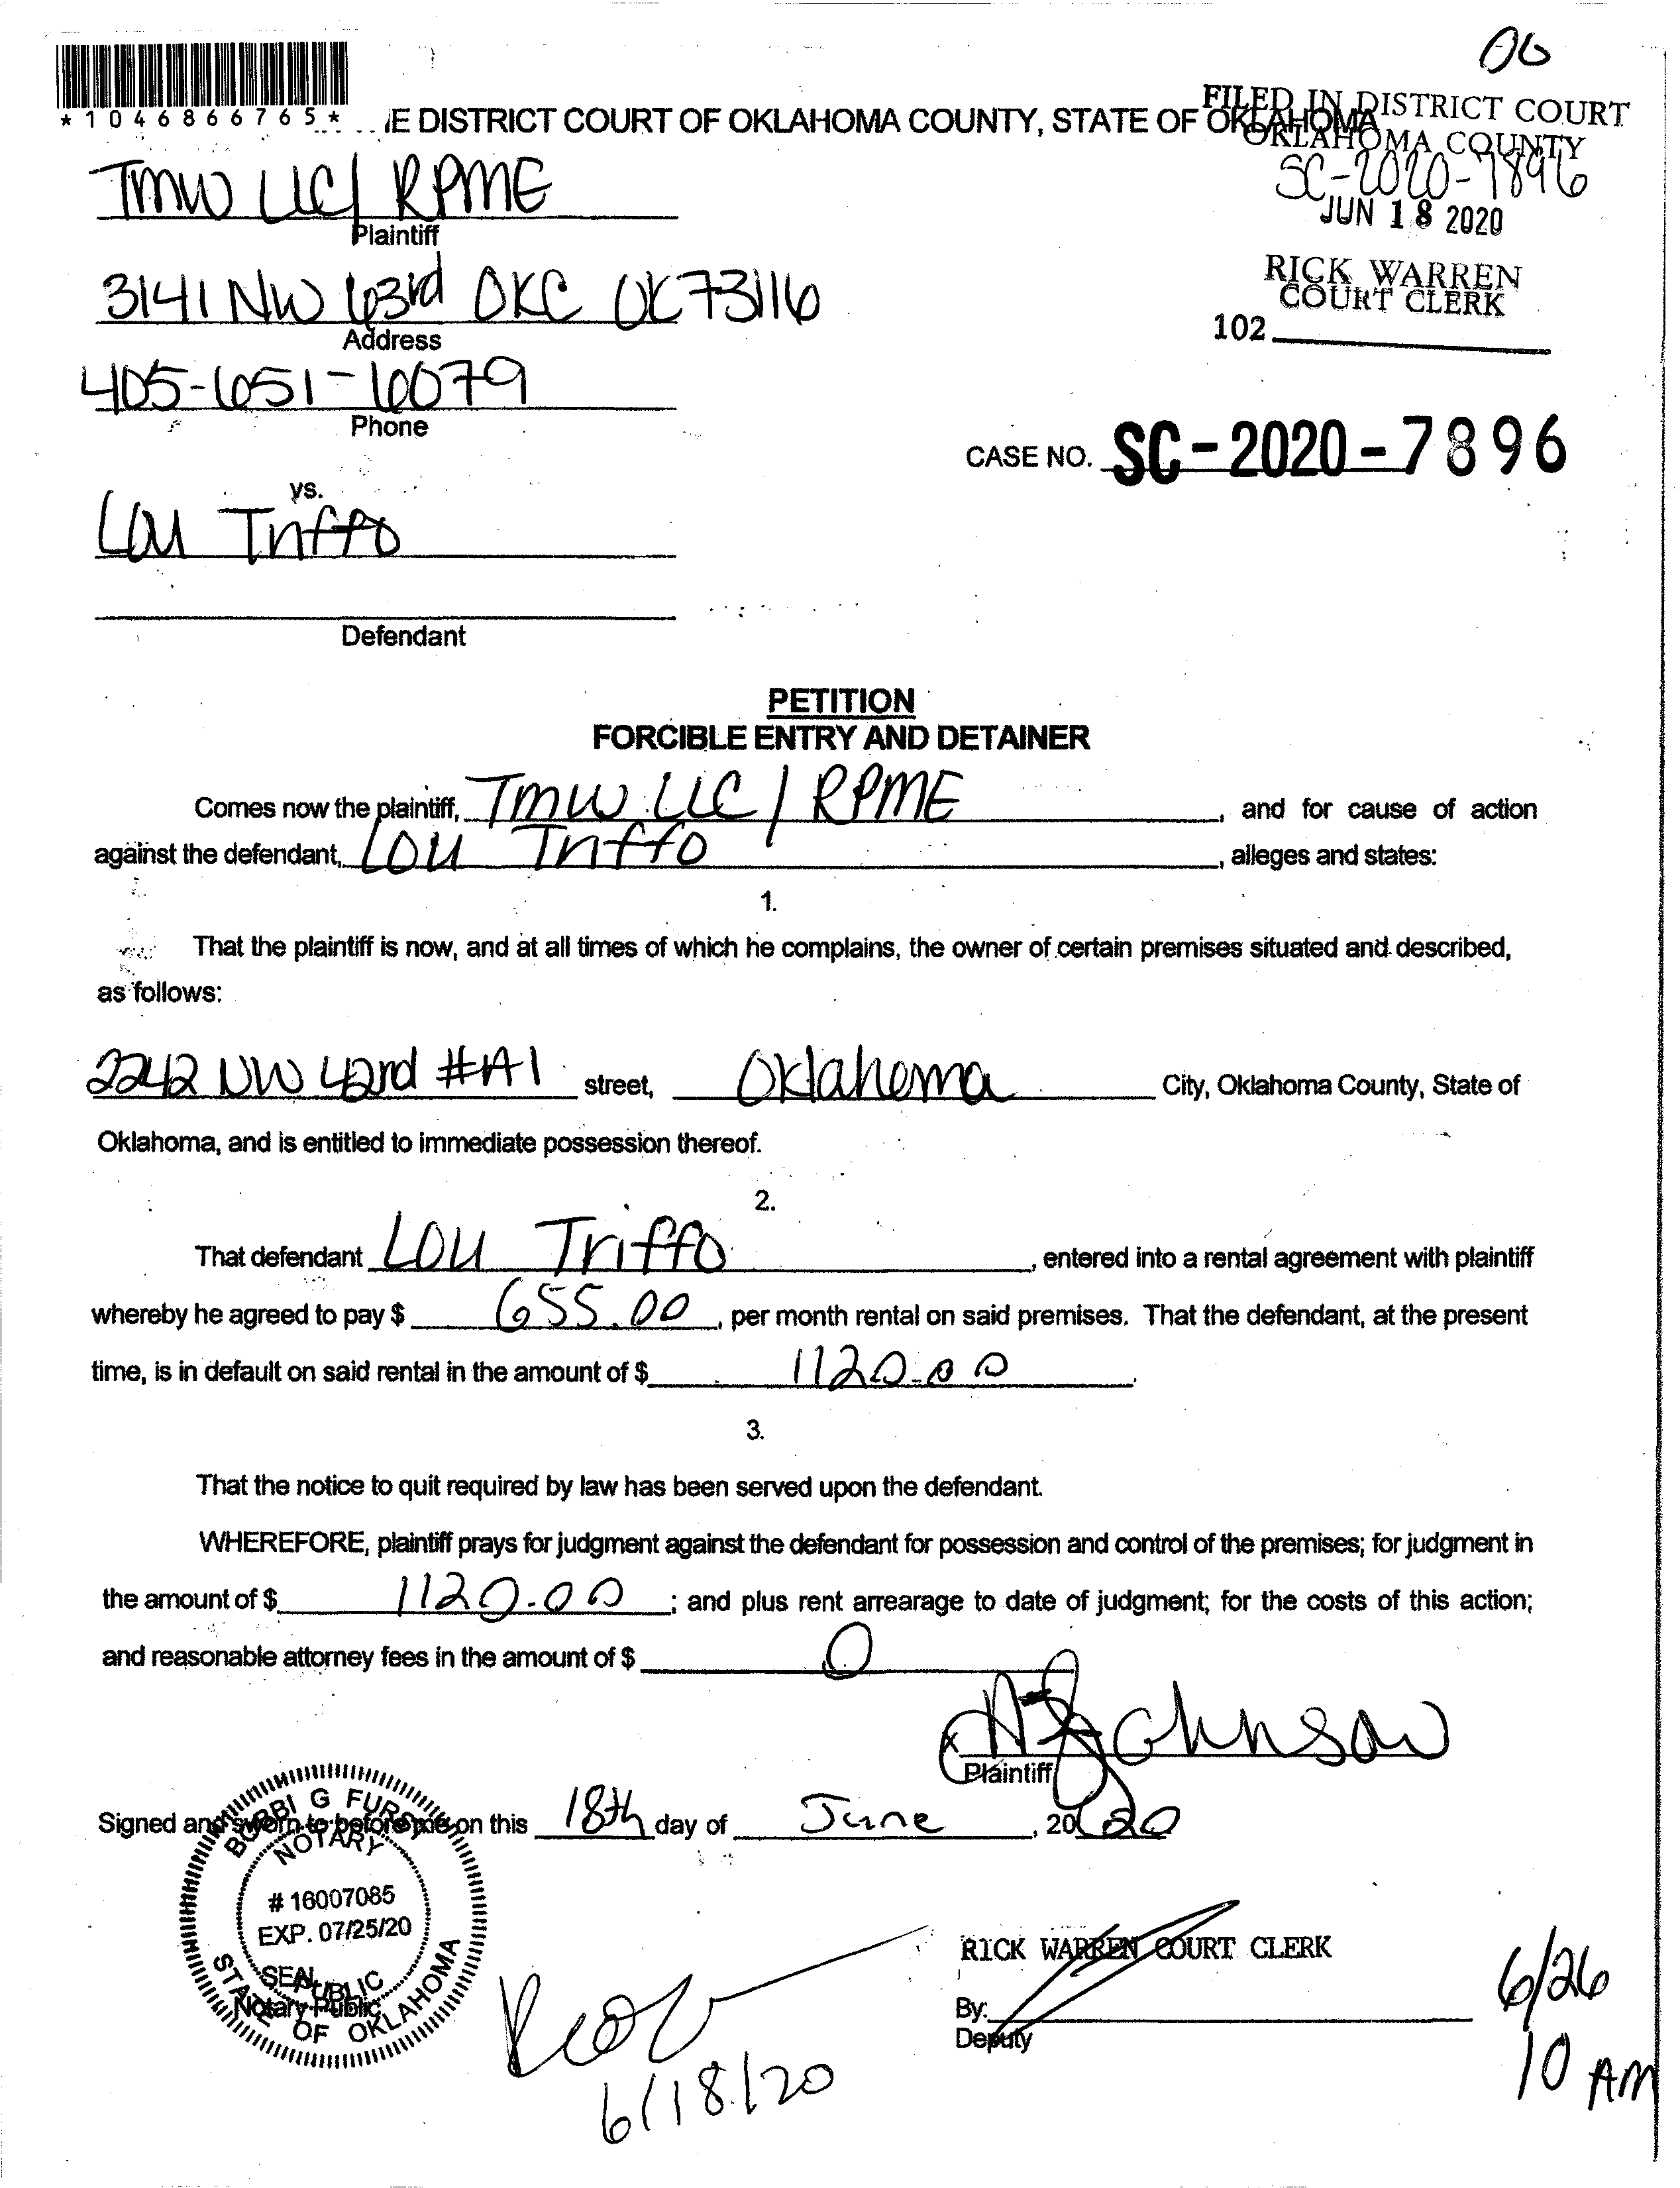 06
*1046866765*
E DISTRICT COURT OF OKLAHOMA COUNTY, STATE OF OKLAHOMA
FILED IN DISTRICT COURT
OKLAHOMA COUNTY
SC-2020-7896
JUN 18 2020
RICK WARREN
COURT CLERK
102
TMW LLC/ RPME
Plaintiff
3141 NW 63rd OKC OK 73116
Address
405-651-6079
Phone
CASE NO. SC-2020-7896
vs.
Lou Triffo
Defendant
PETITION
FORCIBLE ENTRY AND DETAINER
Comes now the plaintiff, TMW LLC / RPME, and for cause of action
against the defendant, Lou Triffo, alleges and states:
1.
That the plaintiff is now, and at all times of which he complains, the owner of certain premises situated and described,
as follows:
2242 NW 42nd #A1 street, Oklahoma City, Oklahoma County, State of
Oklahoma, and is entitled to immediate possession thereof.
2.
That defendant Lou Triffo, entered into a rental agreement with plaintiff
whereby he agreed to pay $ 655.00, per month rental on said premises. That the defendant, at the present
time, is in default on said rental in the amount of $ 1120.00.
3.
That the notice to quit required by law has been served upon the defendant.
WHEREFORE, plaintiff prays for judgment against the defendant for possession and control of the premises; for judgment in
the amount of $ 1120.00; and plus rent arrearage to date of judgment; for the costs of this action;
and reasonable attorney fees in the amount of $ 0
x Johnson
Plaintiff
Signed and sworn to before me on this 18th day of June, 2020
BOBBI G FURSY
NOTARY
# 16007085
EXP. 07/25/20
SEAL
PUBLIC
Notary Public
STATE OF OKLAHOMA
6/18/20
RICK WARREN COURT CLERK
By:
Deputy
6/26
10 AM